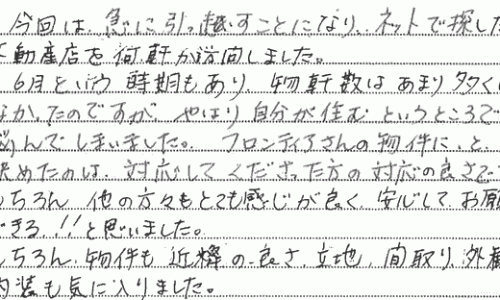 今回は、急に引っ越すことになり、ネットで探した
不動産店を何軒か訪問しました。
6月という時期もあり、物軒数はあまり多くは
なかったのですが、やはり自分が住むというところで
悩んでしまいました。フロンティアさんの物件に、と
決めたのは、対応してくださった方の対応の良さで
もちろん、他の方々もとても感じが良く、安心してお願
できる!!と思いました。
もちろん、物件も近隣の良さ、立地、間取り、外観
内装も気に入りました。